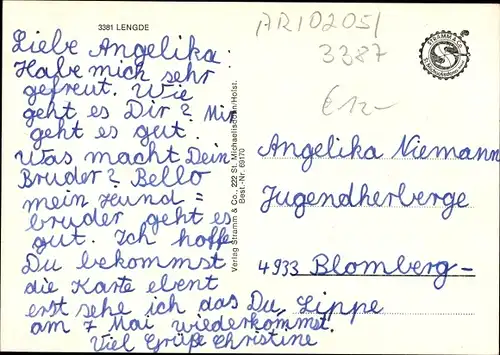 3381 LENGDE
AR10205/
3387
€12-
STRAMM & CO.
St. Michaelisdonn
Liebe Angelika:
Habe mich sehr
gefreut. Wie
geht es Dir? Mir
geht es gut.
Was macht Dein
Bruder? Bello
mein Hund =
bruder geht es
gut. Ich hoffe
Du bekommst
die Karte ebent
erst sehe ich das Du
am 7 Mai wiederkommst.
Viel Grüße Christine
Verlag Stramm & Co., 222 St. Michaelisdonn/Holst.
Best.-Nr. 69170
Angelika Niemann
Jugendherberge
4933 Blomberg-
Lippe